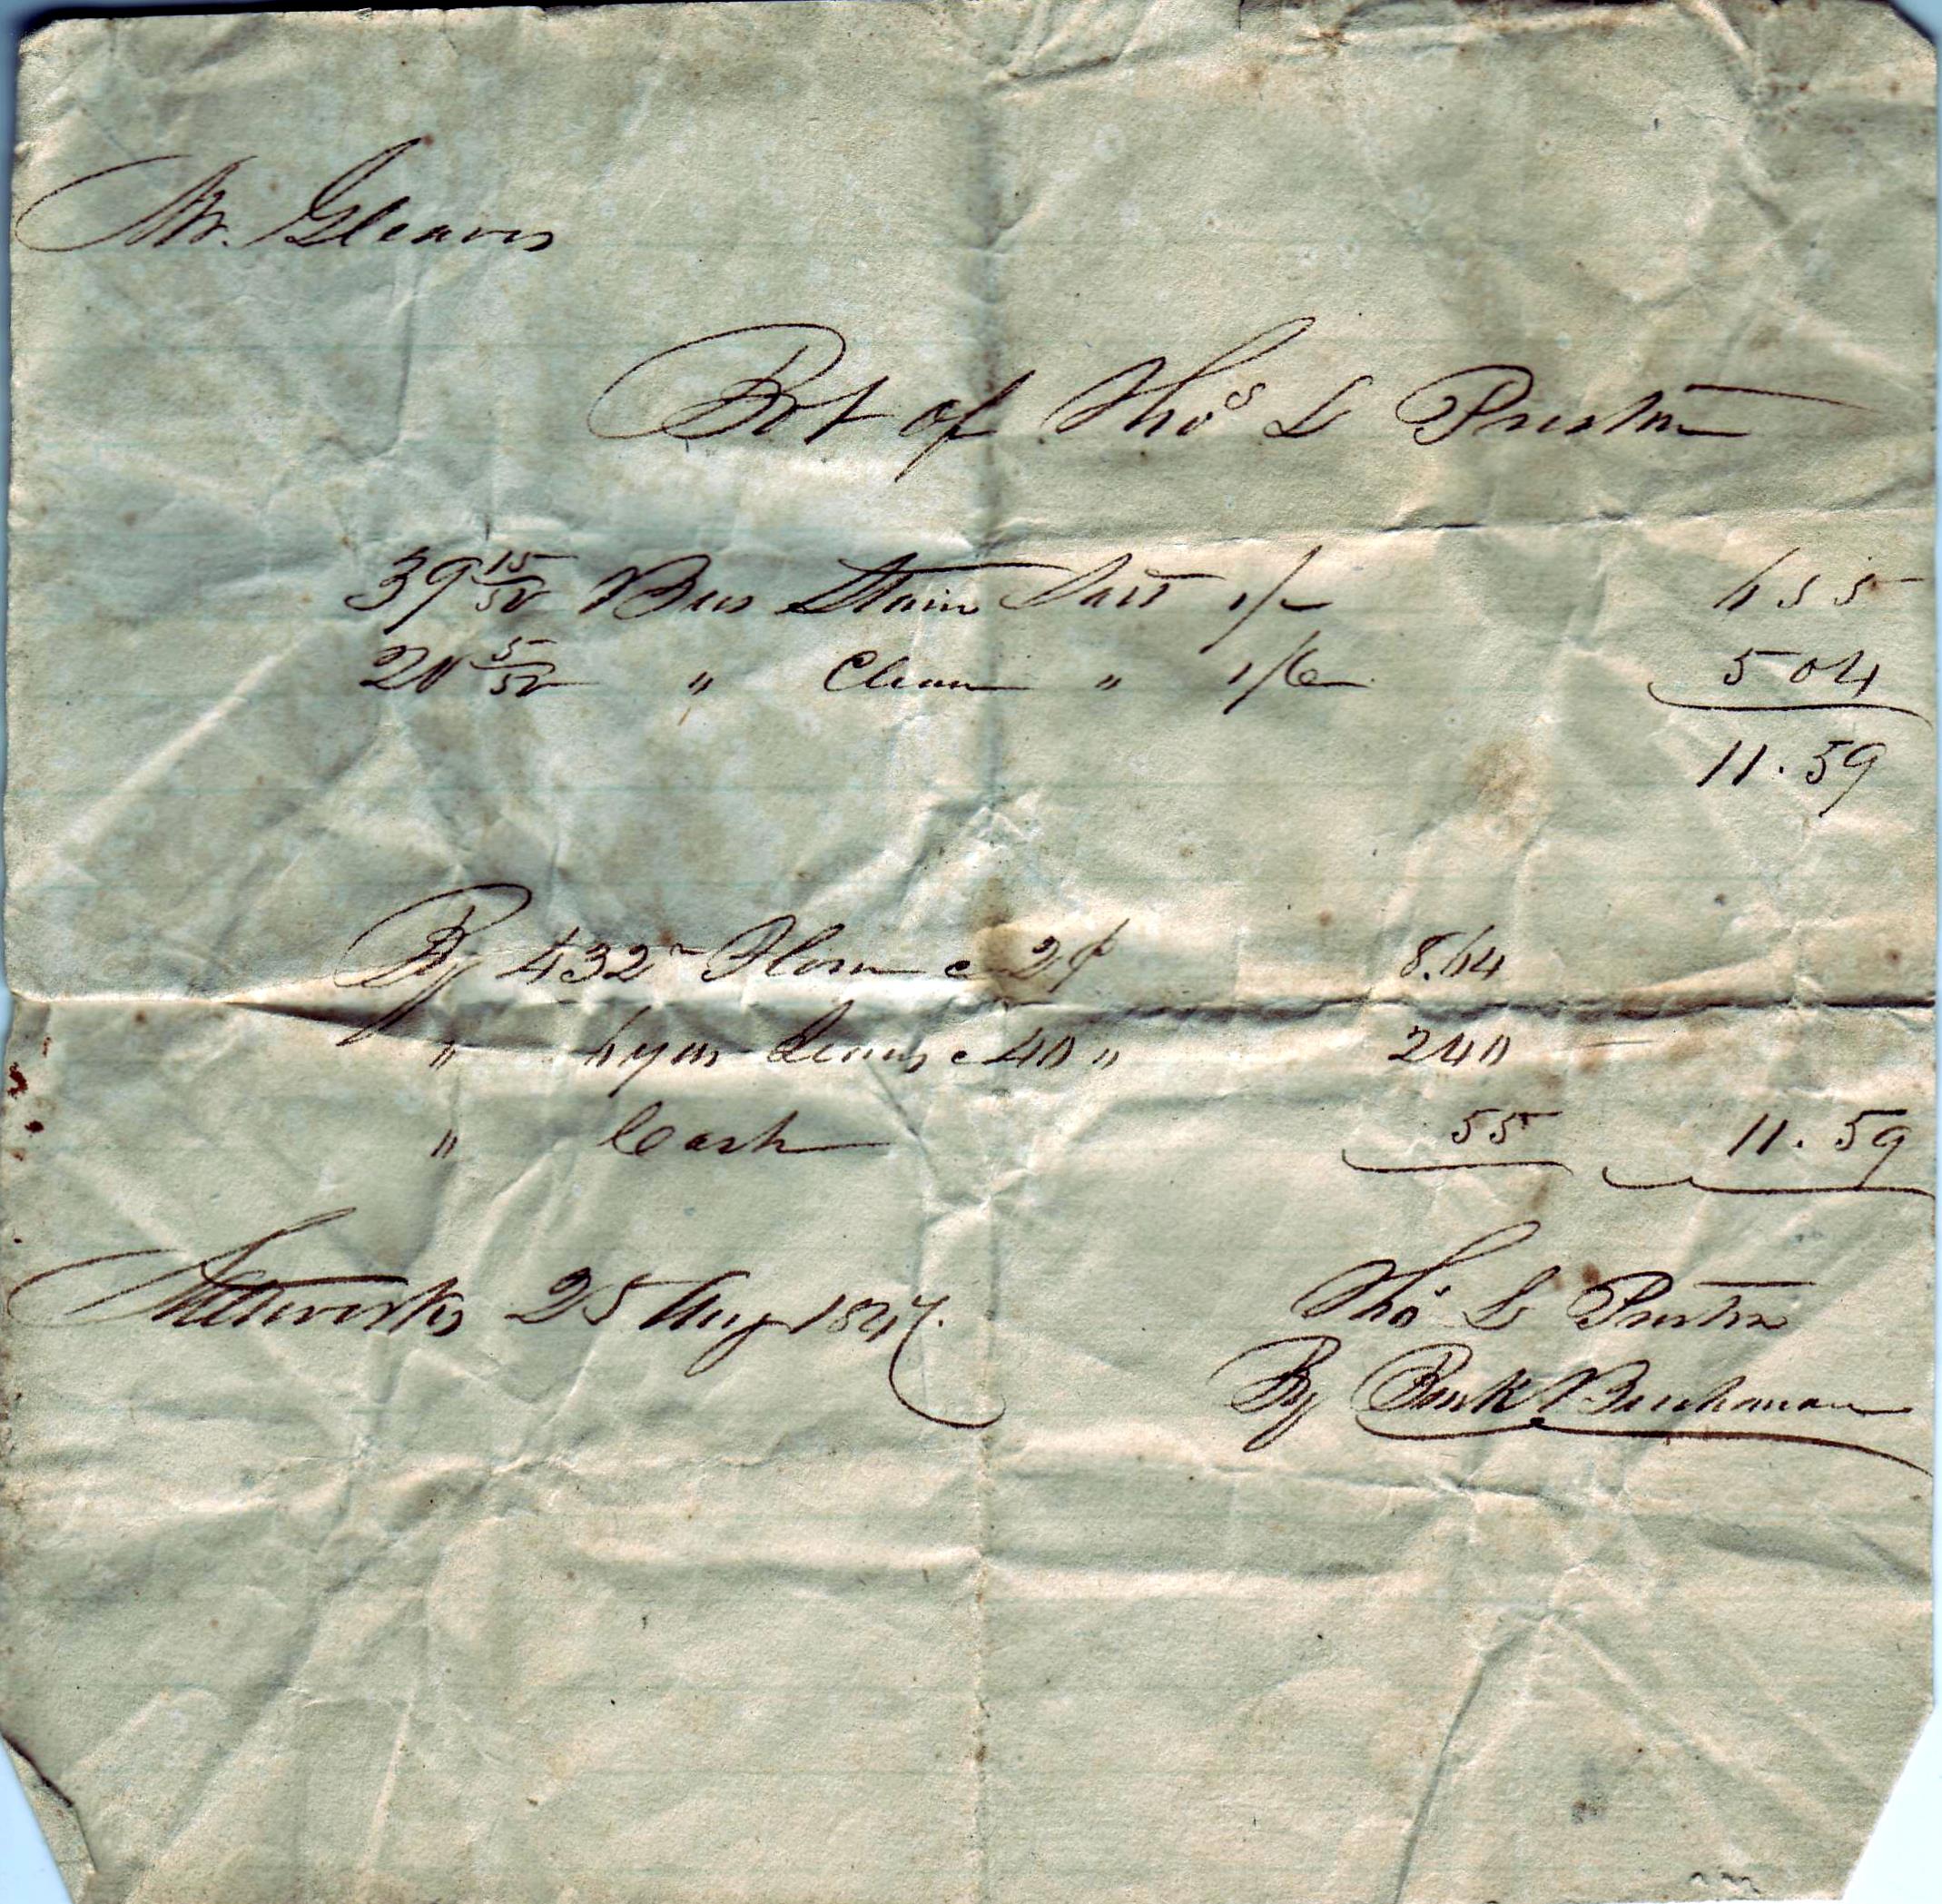 Mr. Gleaves
Bot of Thos L Preston
39 15/50 Bus Stain Salt 1/- 6 55
20 5/50 " Clean " 1/6 5 04
11.59
By 432 Flour @ 2¢ 8.64
" 6 yds Jeans @ 40 " 2 40
" Cash 55 11.59
Saltworks 25 Aug 1847.
Thos L Preston
By Buchanan